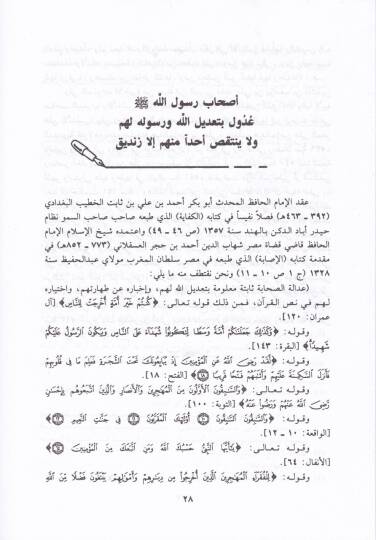 أصحاب رسول الله ﷺ
عُدُول بتعديل الله ورسوله لهم
ولا ينتقص أحداً منهم إلا زنديق
عقد الإمام الحافظ المحدث أبو بكر أحمد بن علي بن ثابت الخطيب البغدادي
(٣٩٢ ـ ٤٦٣هـ) فصلاً نفيساً في كتابه (الكفاية) الذي طبعه صاحب صاحب السمو نظام
حيدر آباد الدكن بالهند سنة ١٣٥٧ (ص ٤٦ ـ ٤٩) واعتمده شيخ الإسلام الإمام
الحافظ قاضي قضاة مصر شهاب الدين أحمد بن حجر العسقلاني (٧٧٣ ـ ٨٥٢هـ) في
مقدمة كتابه (الإصابة) الذي طبعه في مصر سلطان المغرب مولاي عبدالحفيظ سنة
١٣٢٨ (ج ١ ص ١٠ ـ ١١) ونحن نقتطف منه ما يلي:
(عدالة الصحابة ثابتة معلومة بتعديل الله لهم، وإخباره عن طهارتهم، واختياره
لهم في نص القرآن، فمن ذلك قوله تعالى: ﴿كُنتُمْ خَيْرَ أُمَّةٍ أُخْرِجَتْ لِلنَّاسِ﴾ [آل
عمران: ١٢٠].
وقوله: ﴿وَكَذَلِكَ جَعَلْنَاكُمْ أُمَّةً وَسَطًا لِتَكُونُوا شُهَدَاءَ عَلَى النَّاسِ وَيَكُونَ الرَّسُولُ عَلَيْكُمْ
شَهِيدًا﴾ [البقرة: ١٤٣].
وقوله: ﴿لَقَدْ رَضِيَ اللَّهُ عَنِ الْمُؤْمِنِينَ إِذْ يُبَايِعُونَكَ تَحْتَ الشَّجَرَةِ فَعَلِمَ مَا فِي قُلُوبِهِمْ
فَأَنزَلَ السَّكِينَةَ عَلَيْهِمْ وَأَثَابَهُمْ فَتْحًا قَرِيبًا ۝١٨﴾ [الفتح: ١٨].
وقوله تعالى: ﴿وَالسَّابِقُونَ الْأَوَّلُونَ مِنَ الْمُهَاجِرِينَ وَالْأَنصَارِ وَالَّذِينَ اتَّبَعُوهُم بِإِحْسَانٍ
رَّضِيَ اللَّهُ عَنْهُمْ وَرَضُوا عَنْهُ﴾ [التوبة: ١٠٠].
وقوله: ﴿وَالسَّابِقُونَ السَّابِقُونَ ۝١٠ أُولَئِكَ الْمُقَرَّبُونَ ۝١١ فِي جَنَّاتِ النَّعِيمِ ۝١٢﴾
[الواقعة: ١٠ ـ ١٢].
وقوله تعالى: ﴿يَا أَيُّهَا النَّبِيُّ حَسْبُكَ اللَّهُ وَمَنِ اتَّبَعَكَ مِنَ الْمُؤْمِنِينَ ۝٦٤﴾
[الأنفال: ٦٤].
وقوله: ﴿لِلْفُقَرَاءِ الْمُهَاجِرِينَ الَّذِينَ أُخْرِجُوا مِن دِيَارِهِمْ وَأَمْوَالِهِمْ يَبْتَغُونَ فَضْلًا مِّنَ اللَّهِ
٢٨